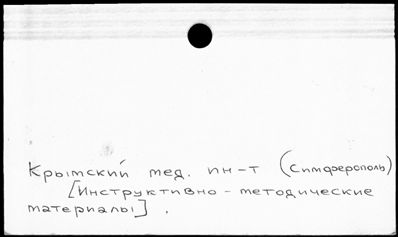 Крымский мед. ин-т (Симферополь)
[Инструктивно - методические
материалы] .